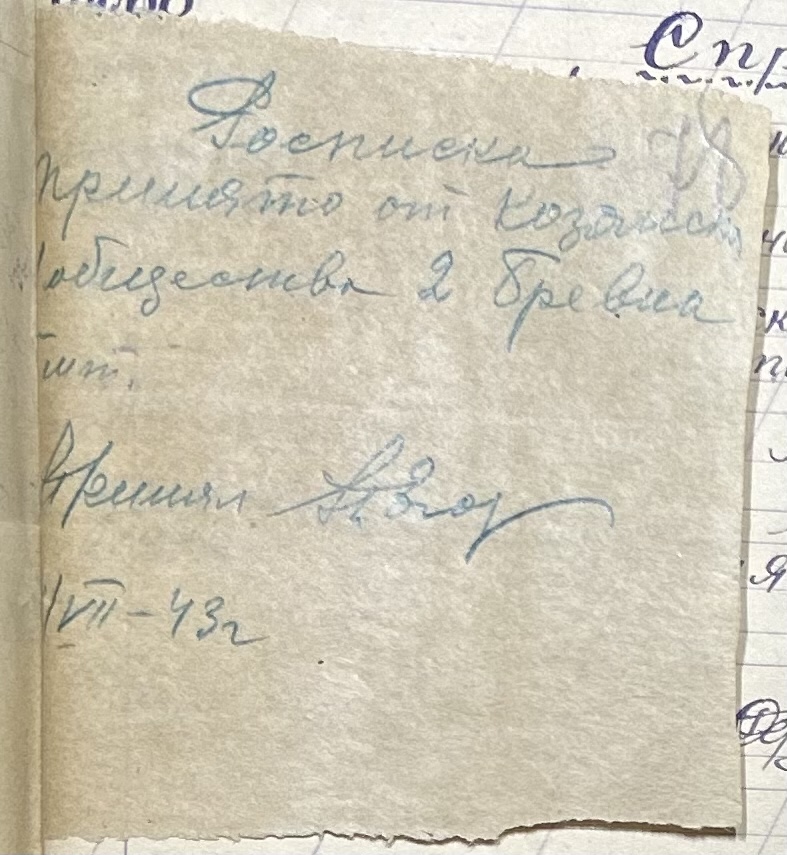 Спр
Росписка
принято от Козанск
общества 2 бревна
шт.
Принял
VII-43г